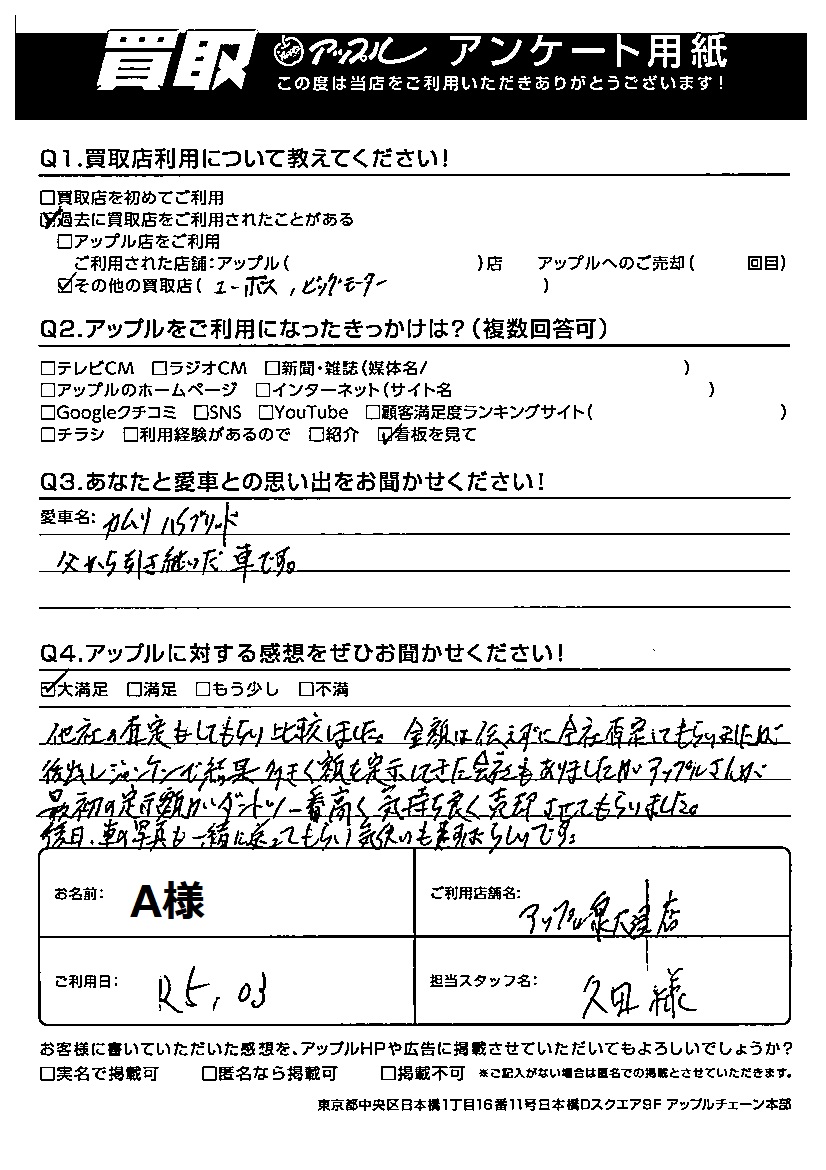 買取 アップル アンケート用紙
この度は当店をご利用いただきありがとうございます!
Q1.買取店利用について教えてください!
□買取店を初めてご利用
☑過去に買取店をご利用されたことがある
□アップル店をご利用
ご利用された店舗:アップル( )店 アップルへのご売却( 回目)
☑その他の買取店( ユーポス , ビッグモーター )
Q2.アップルをご利用になったきっかけは?(複数回答可)
□テレビCM □ラジオCM □新聞・雑誌(媒体名/ )
□アップルのホームページ □インターネット(サイト名 )
□Googleクチコミ □SNS □YouTube □顧客満足度ランキングサイト( )
□チラシ □利用経験があるので □紹介 ☑看板を見て
Q3.あなたと愛車との思い出をお聞かせください!
愛車名: カムリ ハイブリッド
父から引き継いだ車です。
Q4.アップルに対する感想をぜひお聞かせください!
☑大満足 □満足 □もう少し □不満
他社の査定もしてもらい比較しました。金額は伝えずに全社査定してもらいましたが
後出しジャンケンで結果大きく額を提示してきた会社もありましたがアップルさんが
最初の提示額がダントツ一番高く気持ち良く売却させてもらいました。
後日、車の写真も一緒に送ってもらい気使いもすばらしいです。
お名前: A様 ご利用店舗名: アップル泉大津店
ご利用日: R5, 03 担当スタッフ名: 久田 様
お客様に書いていただいた感想を、アップルHPや広告に掲載させていただいてもよろしいでしょうか?
□実名で掲載可 □匿名なら掲載可 □掲載不可 ※ご記入がない場合は匿名での掲載とさせていただきます。
東京都中央区日本橋1丁目16番11号日本橋Dスクエア9F アップルチェーン本部